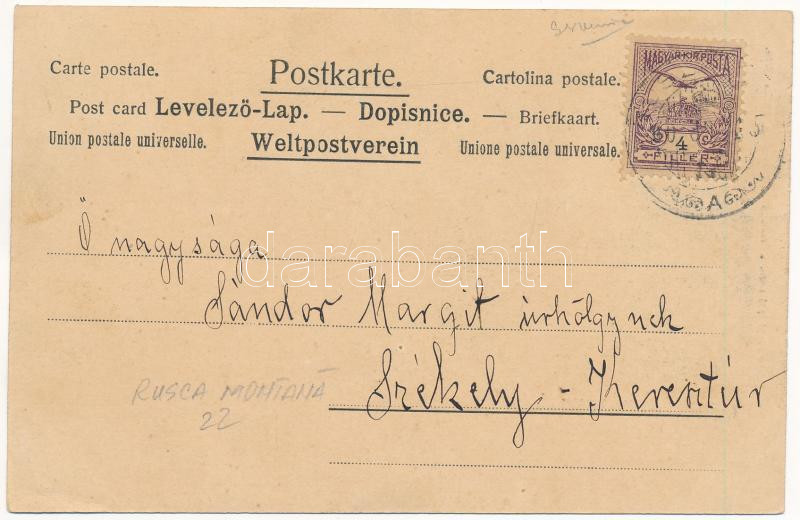 Carte postale.
Postkarte.
Cartolina postale.
Post card Levelező-Lap. — Dopisnice. — Briefkaart.
Union postale universelle.
Weltpostverein
Unione postale universale.
MAGYAR KIR. POSTA
4
FILLÉR
Ő nagysága
Sándor Margit úrhölgynek
Székely-Keresztúr
RUSCA MONTANĂ
22
darabanth